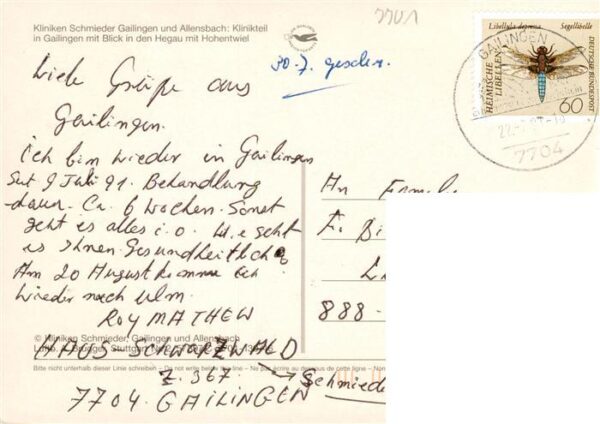 Kliniken Schmieder Gailingen und Allensbach: Klinikteil
in Gailingen mit Blick in den Hegau mit Hohentwiel
7701
Libellula depressa Segellibelle
HEIMISCHE LIBELLEN
DEUTSCHE BUNDESPOST
60
GAILINGEN
7704
30.7. geschr.
Liebe Grüße aus
Gailingen.
Ich bin wieder in Gailingen
Seit 9 Juli 91. Behandlung
dauer Ca. 6 Wochen. Sonst
geht es alles i.O. Wie geht
es Ihnen Gesundheitlich?
Am 20 August komme ich
wieder nach Ulm.
ROY MATHEW
© Kliniken Schmieder, Gailingen und Allensbach
HAUS SCHWARZWALD
Bitte nicht unterhalb dieser Linie schreiben – Do not write below the line – Ne pas écrire au dessous de cette ligne – Non
Z. 367. → Schmiede
7704 GAILINGEN
An Famile
F. Bi
888-